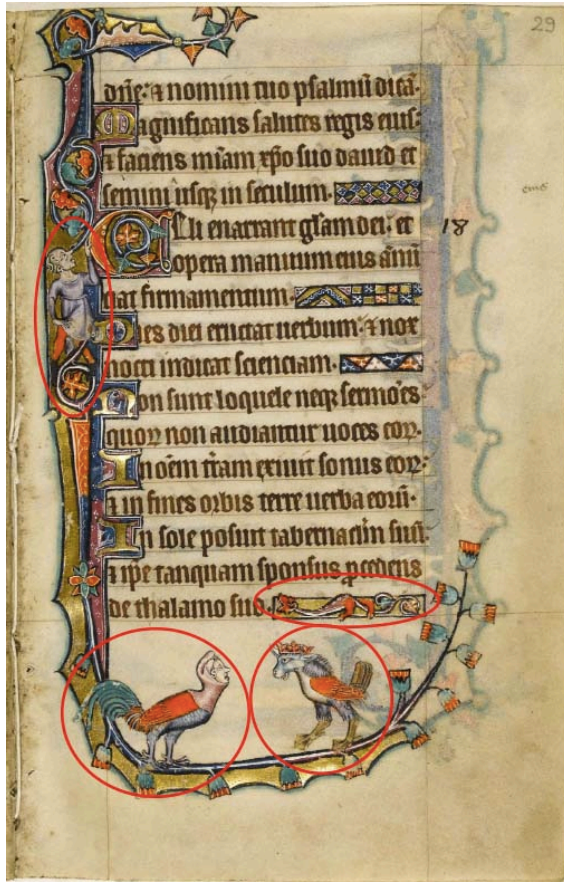 29
dñe: ⁊ nomini tuo psalmũ dicã.
Magnificans salutes regis eius:
⁊ faciens miãm xp̃o suo dauid et
semini usq; in seculum.
Celi enarrant glãm dei: et 18
opera manuum eius ãnũ
ciat firmamentum.
Dies diei eructat uerbum: ⁊ nox
nocti indicat scienciam.
Non sunt loquele neq; sermões
quoꝝ non audiantur uoces eoꝝ:
In õem t̃ram exiuit sonus eoꝝ:
⁊ in fines orbis terre uerba eorũ.
In sole posuit tabernacl̃m suũ:
⁊ ip̃e tanquam sponsus p̱cedens
de thalamo suo.